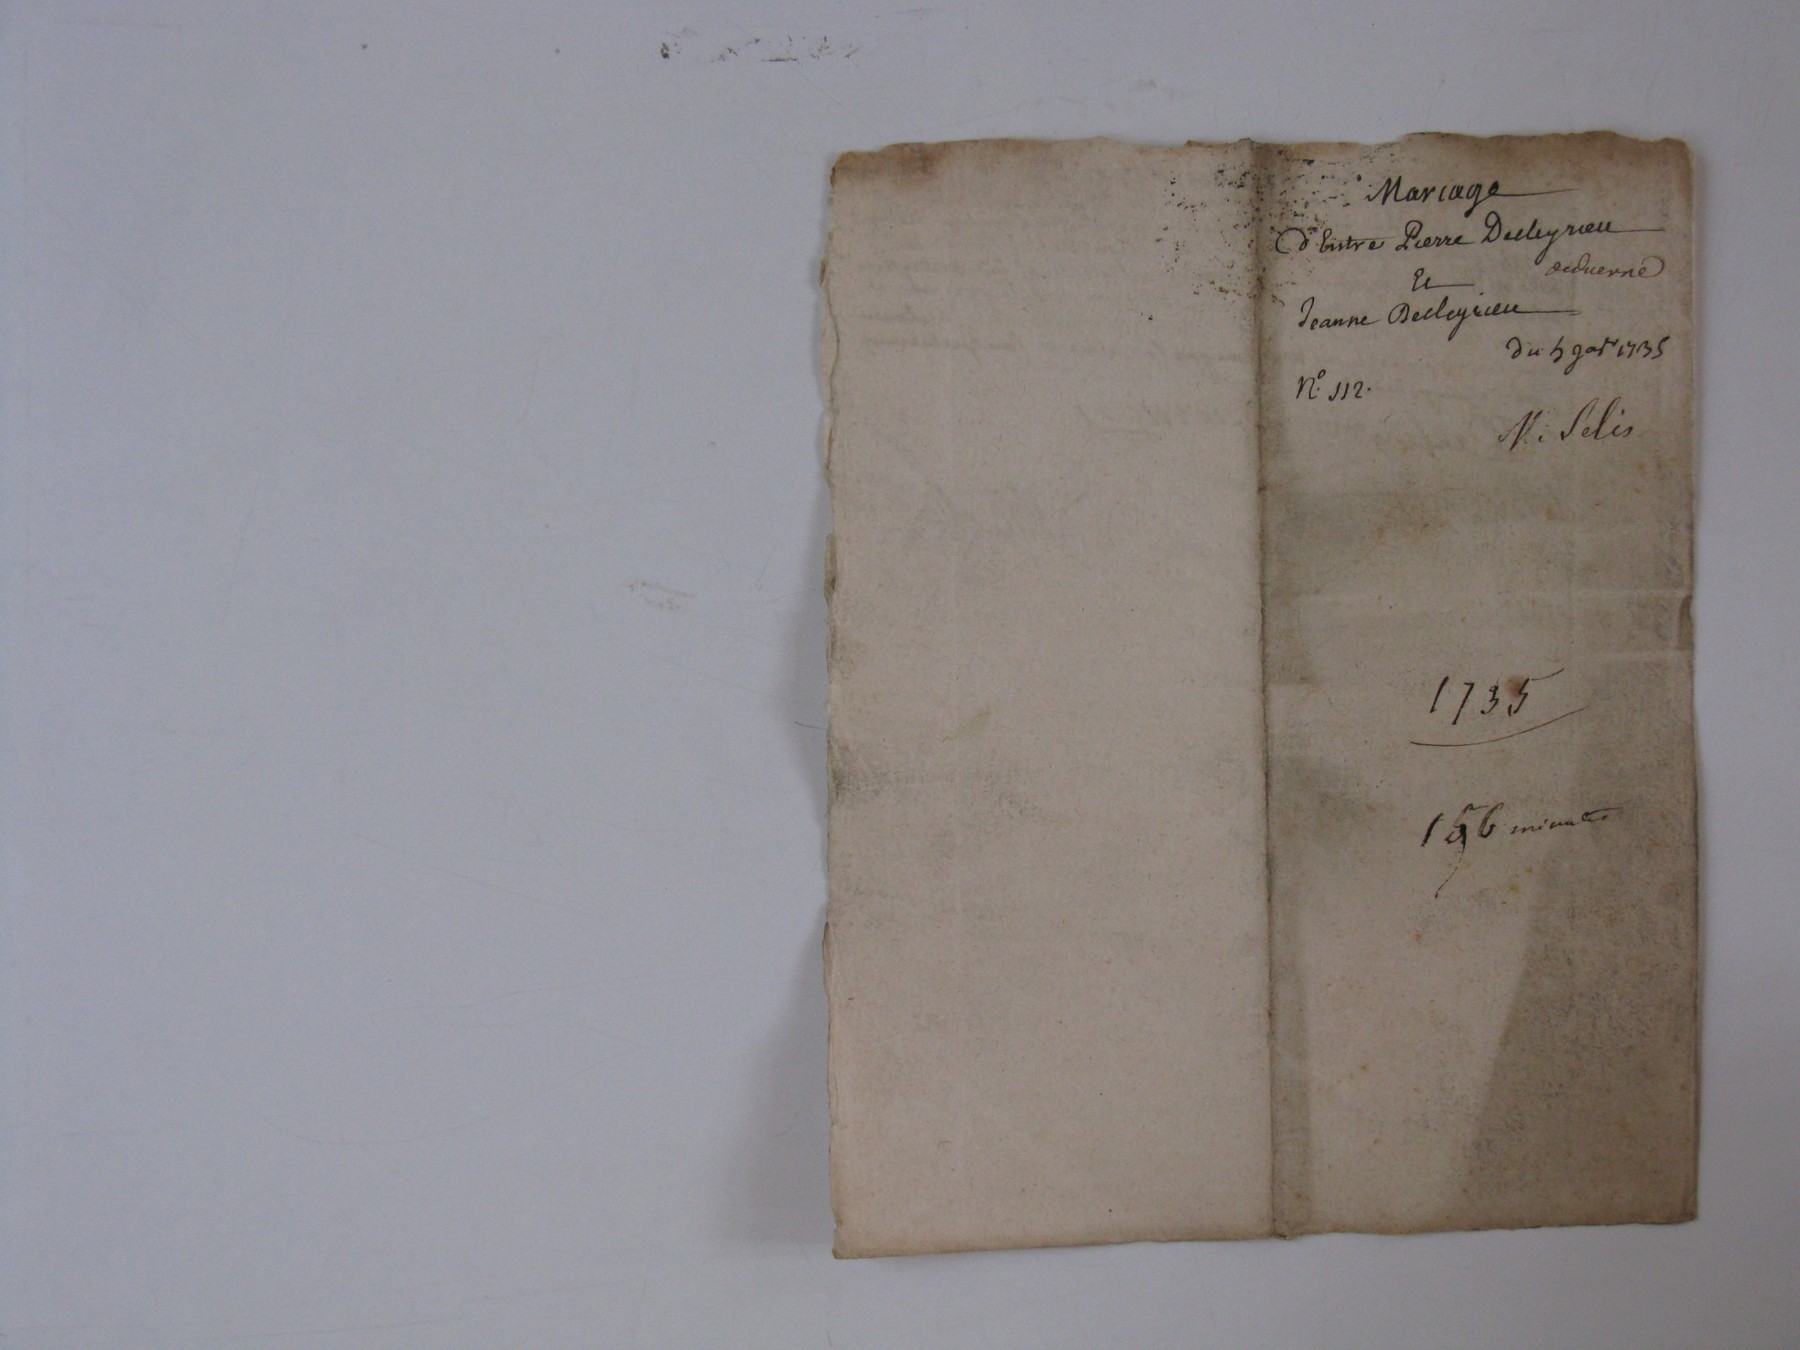 Mariage
d'Entre Pierre Decleyrieu
Et
Jeanne Decleyrieu
du 5 9bre 1735
N° 112.
N. Selis
1735
156 minutes